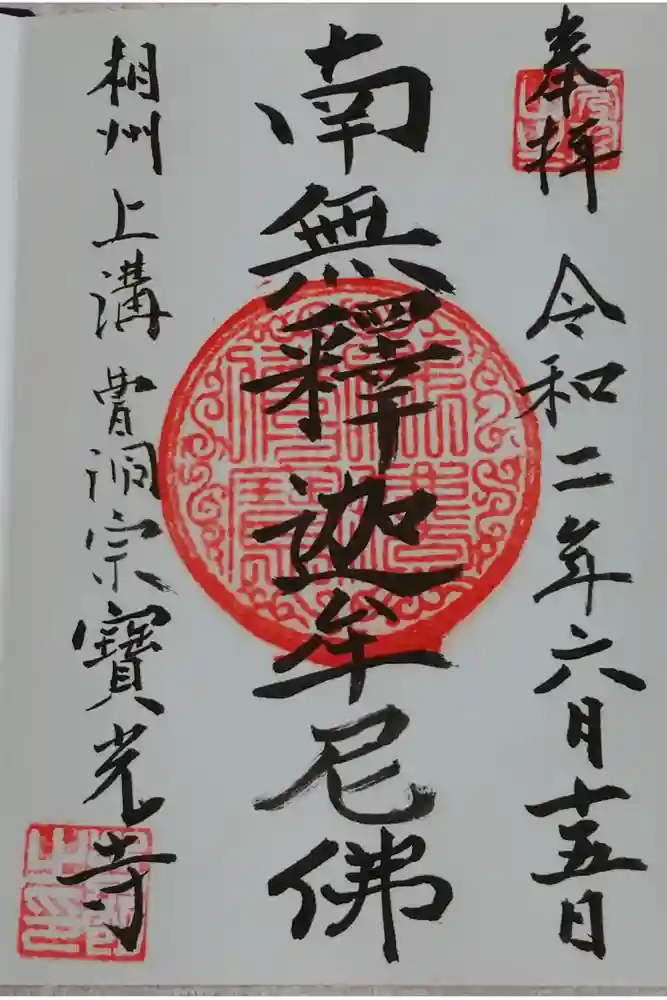 奉拝 令和二年六月十五日
南無釋迦牟尼佛
相州上溝 曹洞宗寳光寺